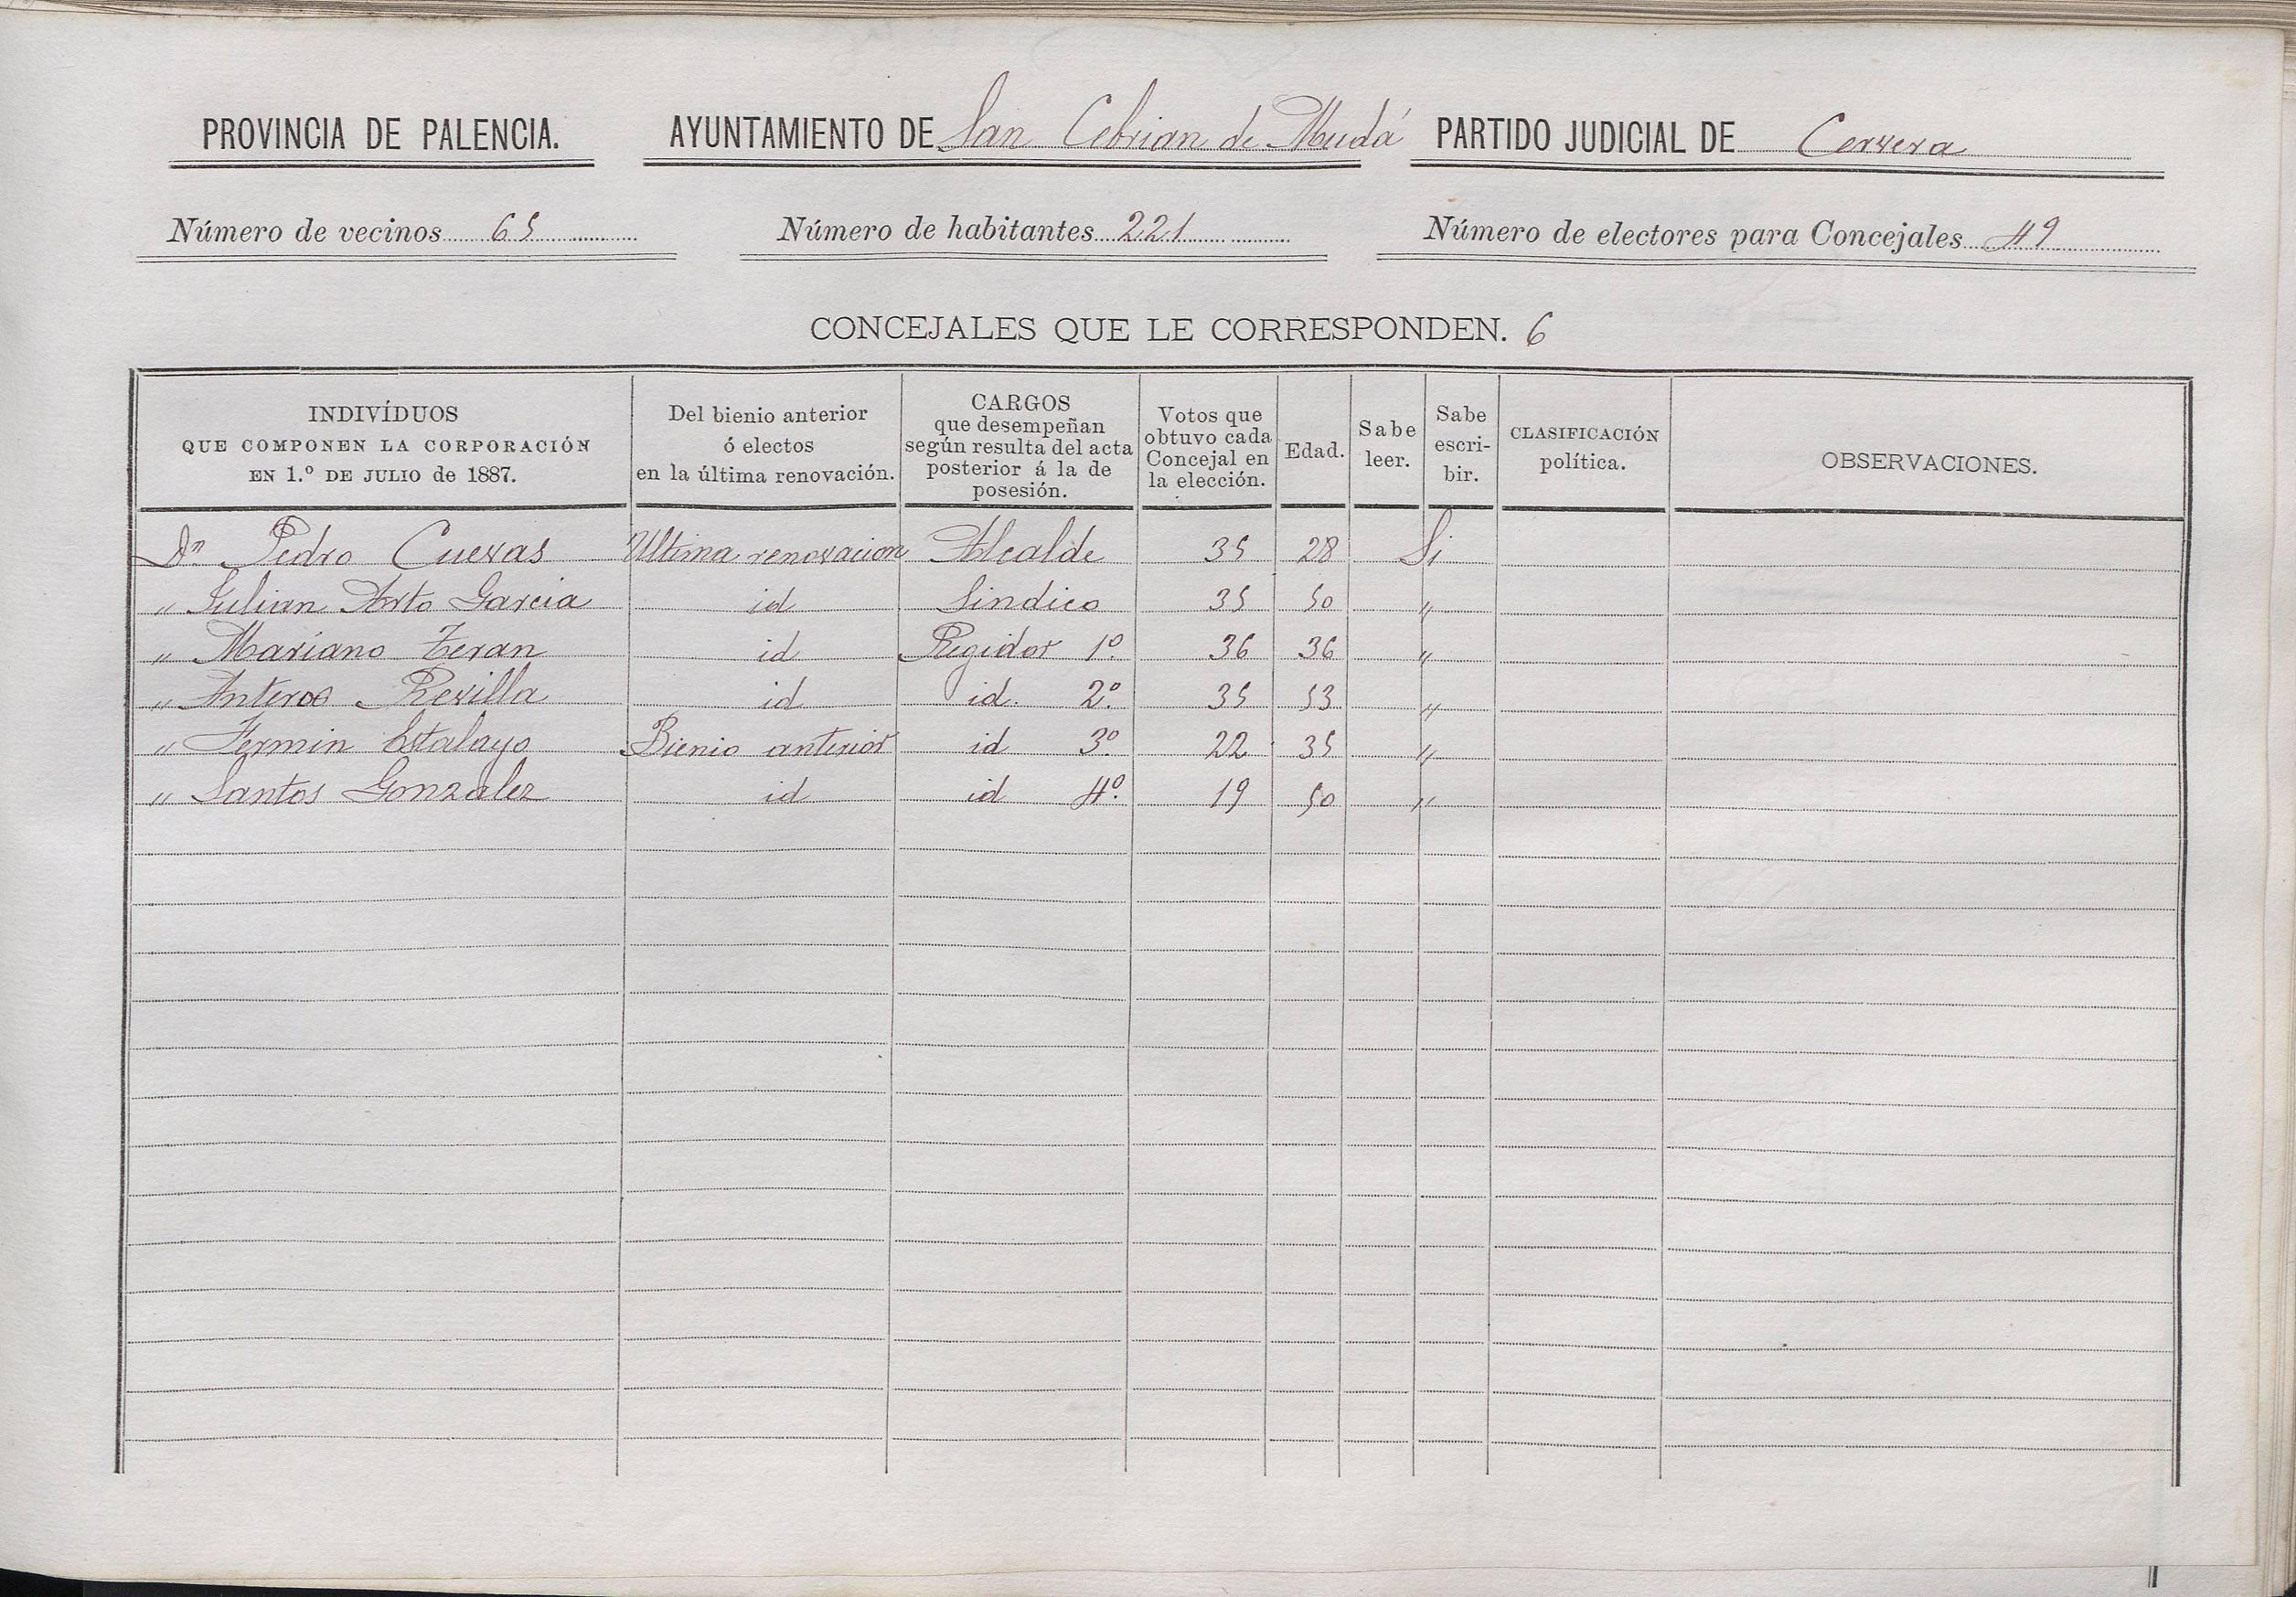 PROVINCIA DE PALENCIA. AYUNTAMIENTO DE San Cebrian de Mudá PARTIDO JUDICIAL DE Cervera
Número de vecinos 65 Número de habitantes 221 Número de electores para Concejales 49
CONCEJALES QUE LE CORRESPONDEN. 6
INDIVÍDUOS QUE COMPONEN LA CORPORACIÓN EN 1.º DE JULIO de 1887. Del bienio anterior ó electos en la última renovación. CARGOS que desempeñan según resulta del acta posterior á la de posesión. Votos que obtuvo cada Concejal en la elección. Edad. Sabe leer. Sabe escri-bir. CLASIFICACIÓN política. OBSERVACIONES.
Dn Pedro Cuevas Ultima renovacion Alcalde 35 28 Si
" Julian Arto Garcia id Sindico 35 50 "
" Mariano Teran id Regidor 1º. 36 36 "
" Anteros Revilla id id. 2º. 35 53 "
" Fermin Estalayo Bienio anterior id 3º. 22 35 "
" Santos Gonzalez id id 4º. 19 50 "